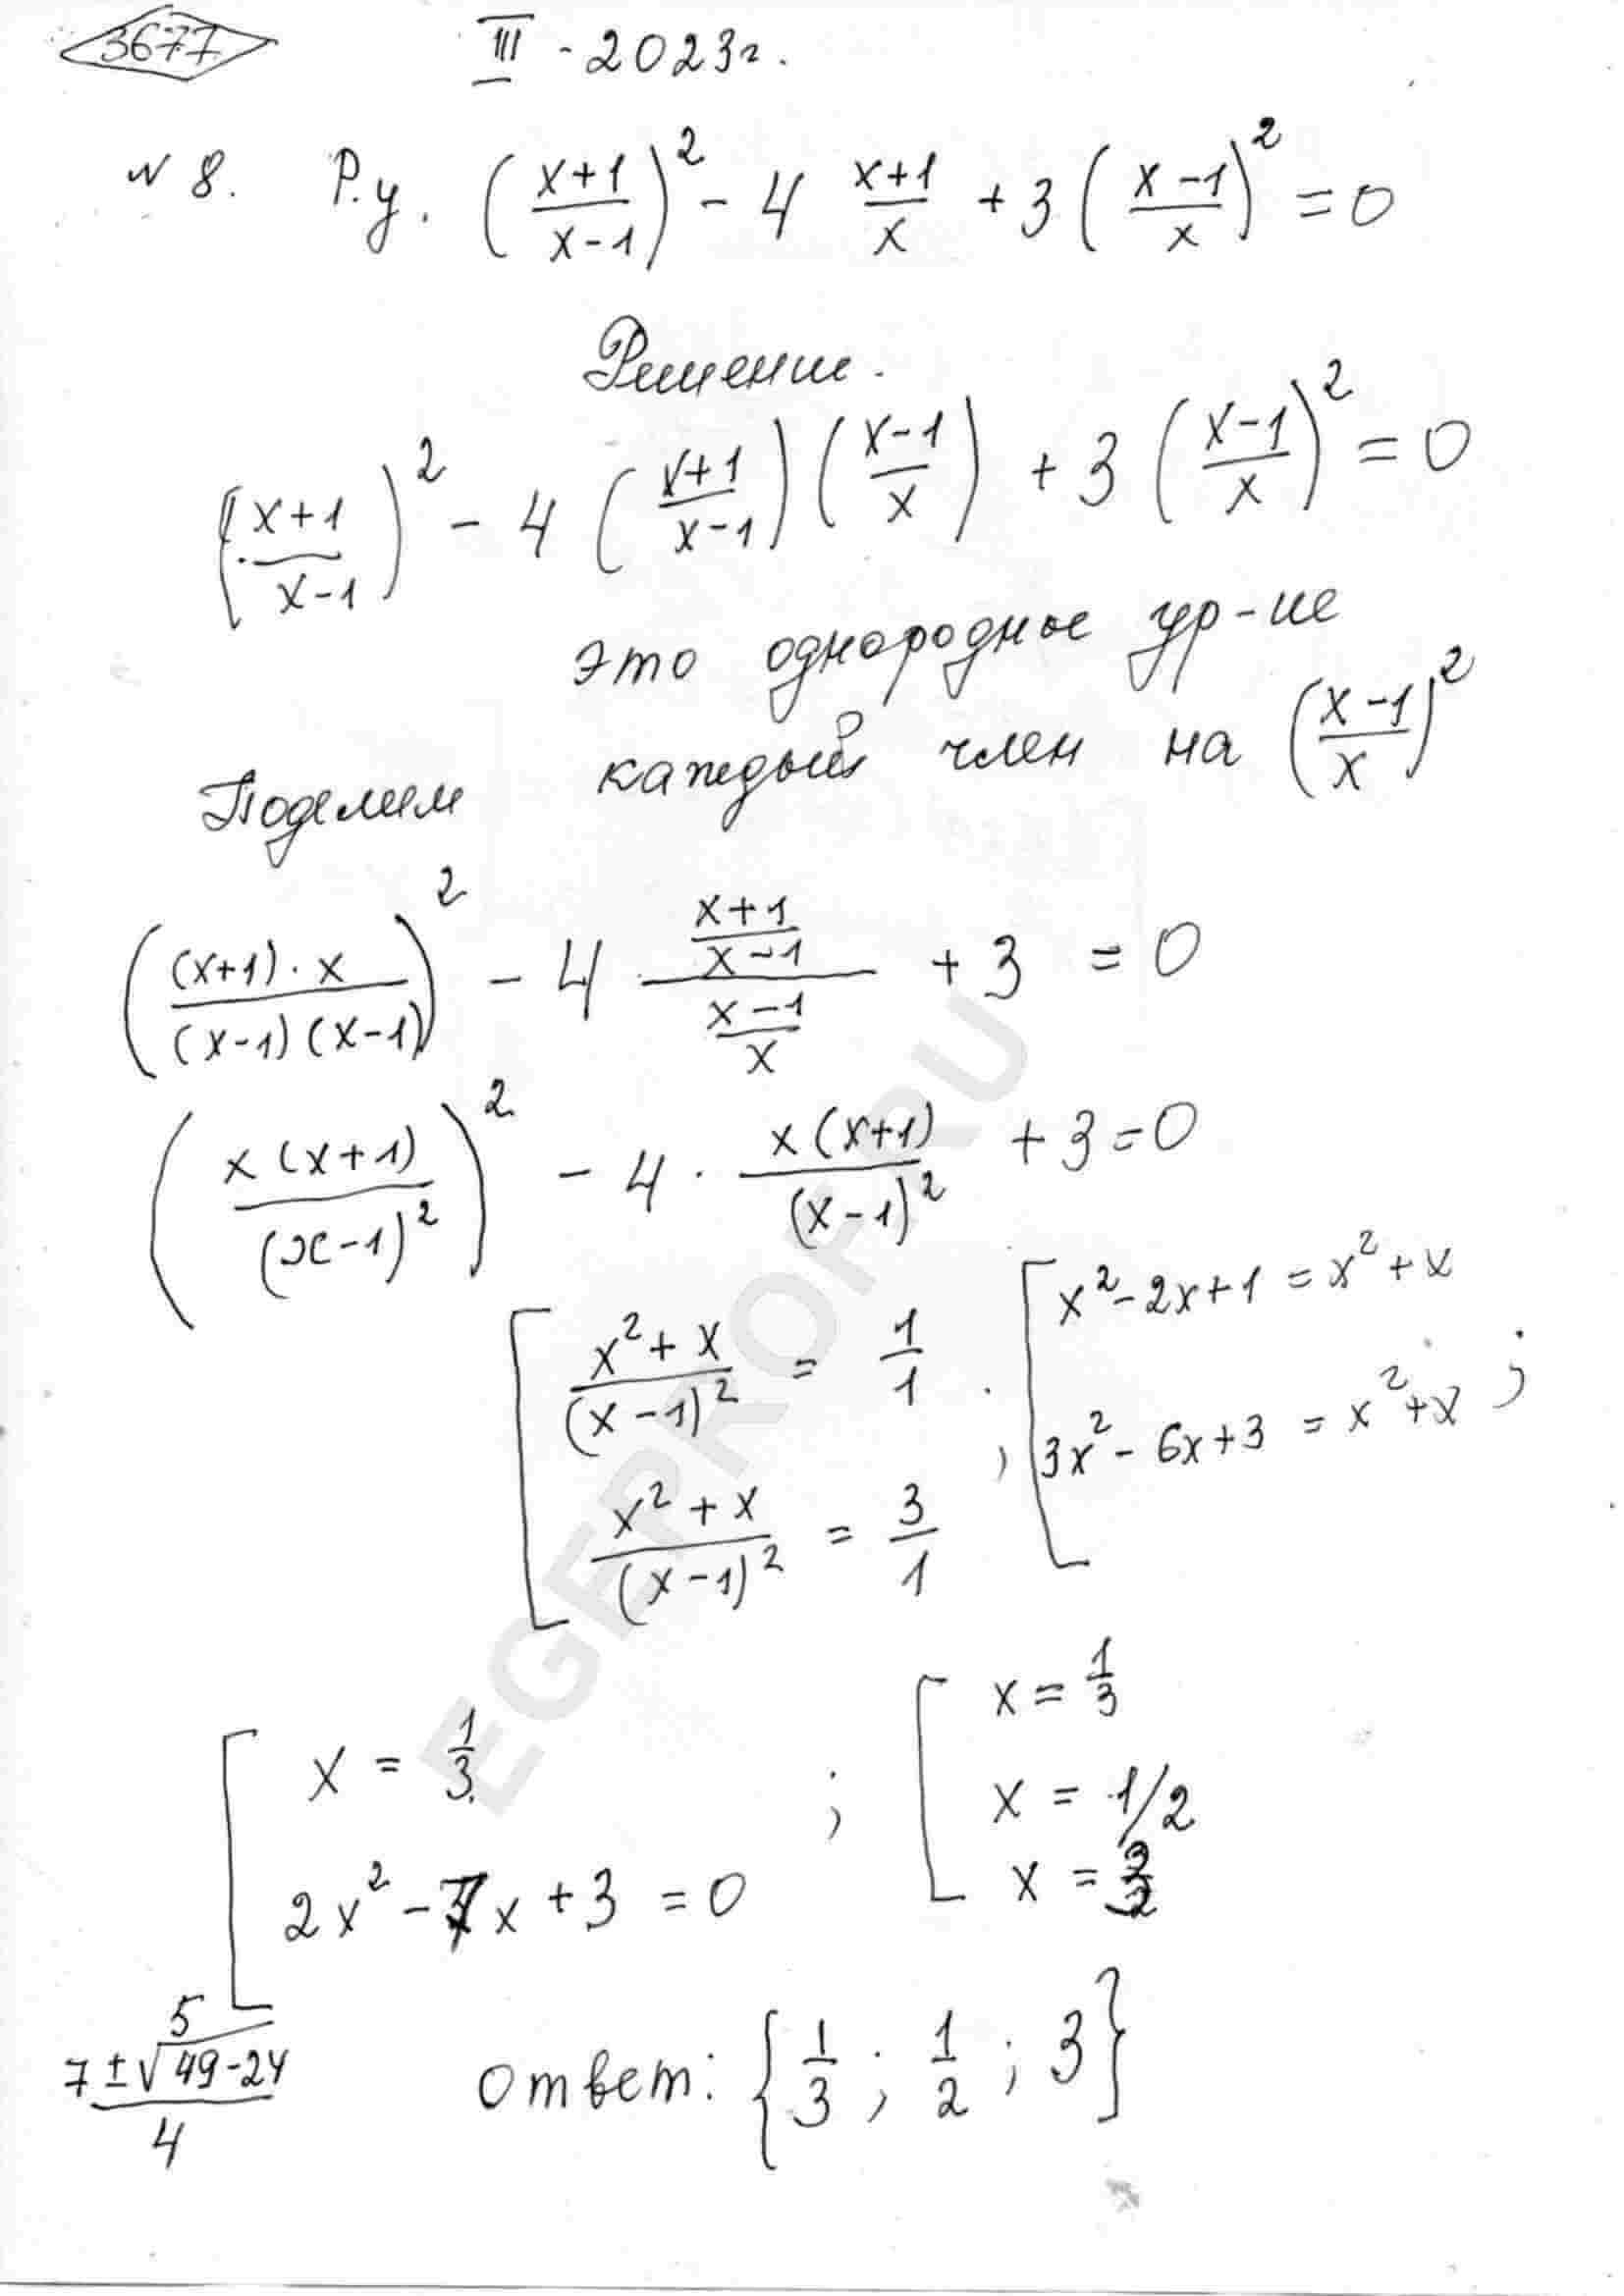 3677 III - 2023г.
№ 8. Р.у. ((x+1)/(x-1))² - 4 (x+1)/x + 3((x-1)/x)² = 0
Решение.
((x+1)/(x-1))² - 4((x+1)/(x-1))((x-1)/x) + 3((x-1)/x)² = 0
это однородное ур-ие
Поделим каждый член на ((x-1)/x)²
(((x+1)·x)/((x-1)(x-1)))² - 4 ((x+1)/(x-1))/((x-1)/x) + 3 = 0
((x(x+1))/((x-1)²))² - 4 · (x(x+1))/((x-1)²) + 3 = 0
[ (x²+x)/((x-1)²) = 1/1 ; [ x²-2x+1 = x²+x
(x²+x)/((x-1)²) = 3/1 3x²-6x+3 = x²+x ;
[ x = 1/3 ; [ x = 1/3
x = 1/2
2x²-7x+3 = 0 x = 3
5
(7±√(49-24))/4
Ответ: {1/3 ; 1/2 ; 3}
EGEPROF.RU